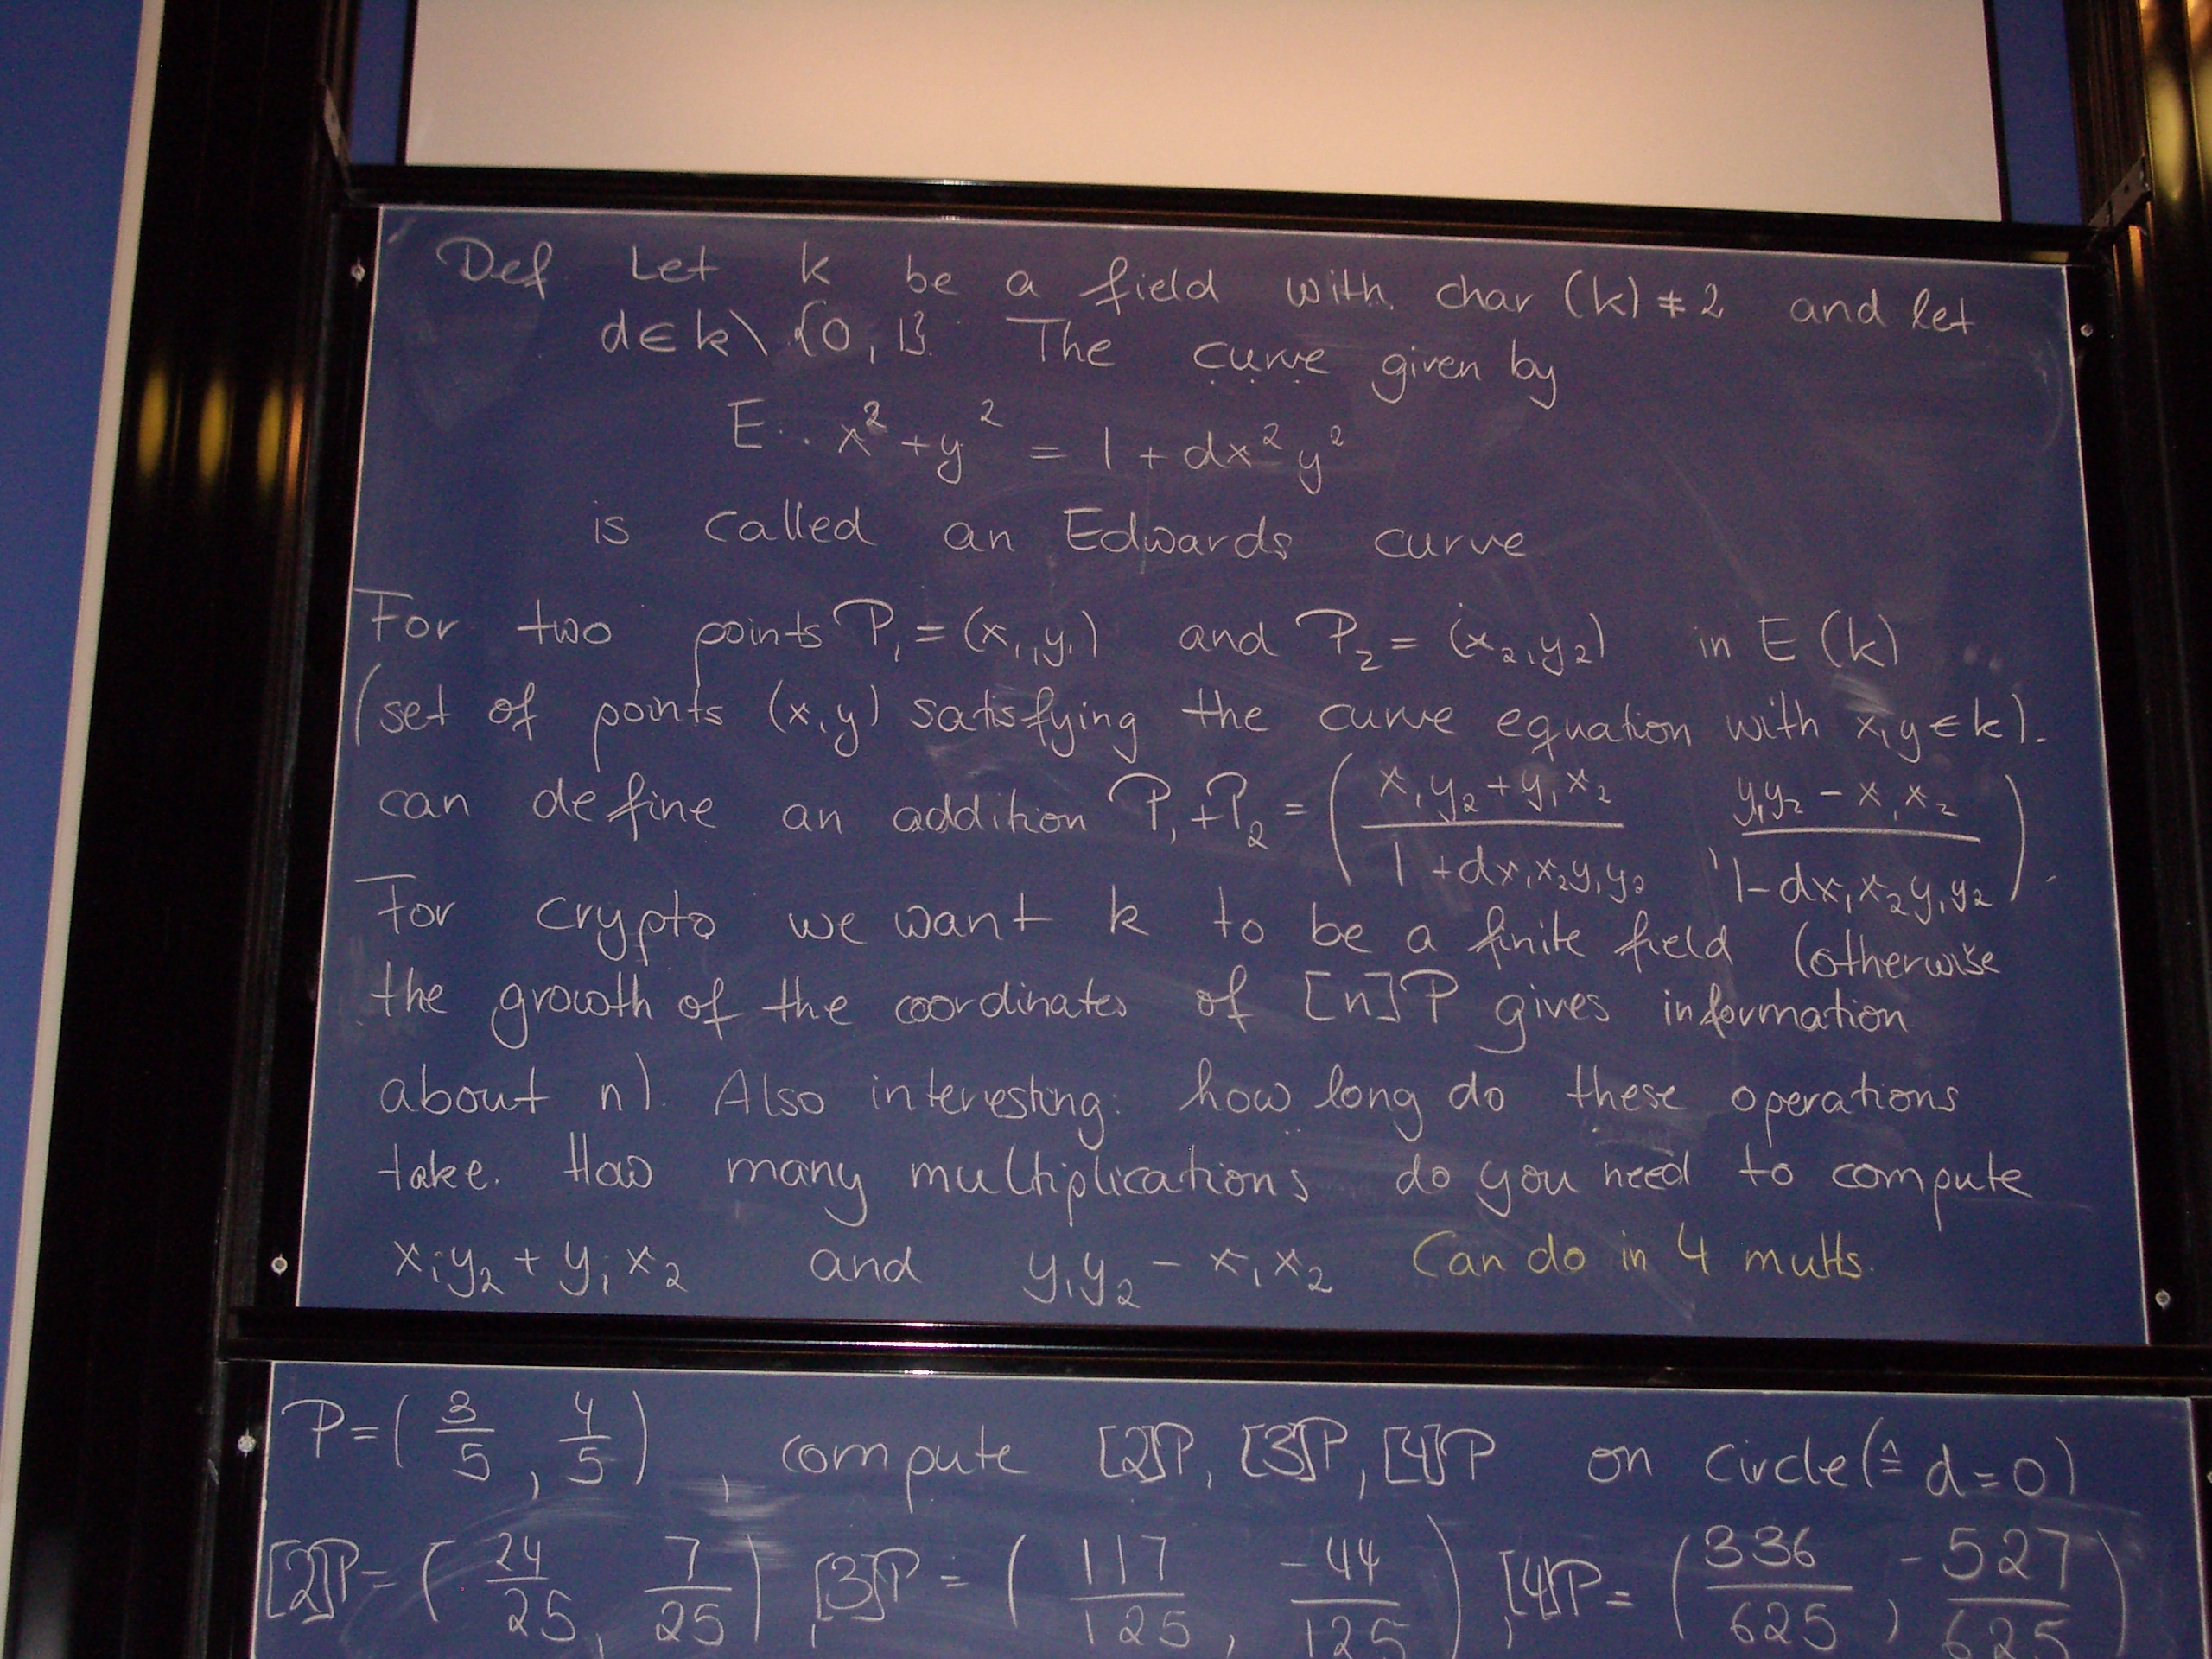 Def Let k be a field with char (k) ≠ 2 and let
d∈k\{0,1}. The curve given by
E: x²+y² = 1+dx²y²
is called an Edwards curve
For two points P₁=(x₁,y₁) and P₂=(x₂,y₂) in E(k)
(set of points (x,y) satisfying the curve equation with x,y∈k).
can define an addition P₁+P₂ = ( (x₁y₂+y₁x₂)/(1+dx₁x₂y₁y₂) , (y₁y₂-x₁x₂)/(1-dx₁x₂y₁y₂) ).
For crypto we want k to be a finite field (otherwise
the growth of the coordinates of [n]P gives information
about n). Also interesting: how long do these operations
take. How many multiplications do you need to compute
x₁y₂+y₁x₂ and y₁y₂-x₁x₂ Can do in 4 mults.
P=(3/5, 4/5), compute [2]P, [3]P, [4]P on circle(≙ d=0)
[2]P=(24/25, 7/25), [3]P=(117/125, -44/125), [4]P=(336/625, -527/625)